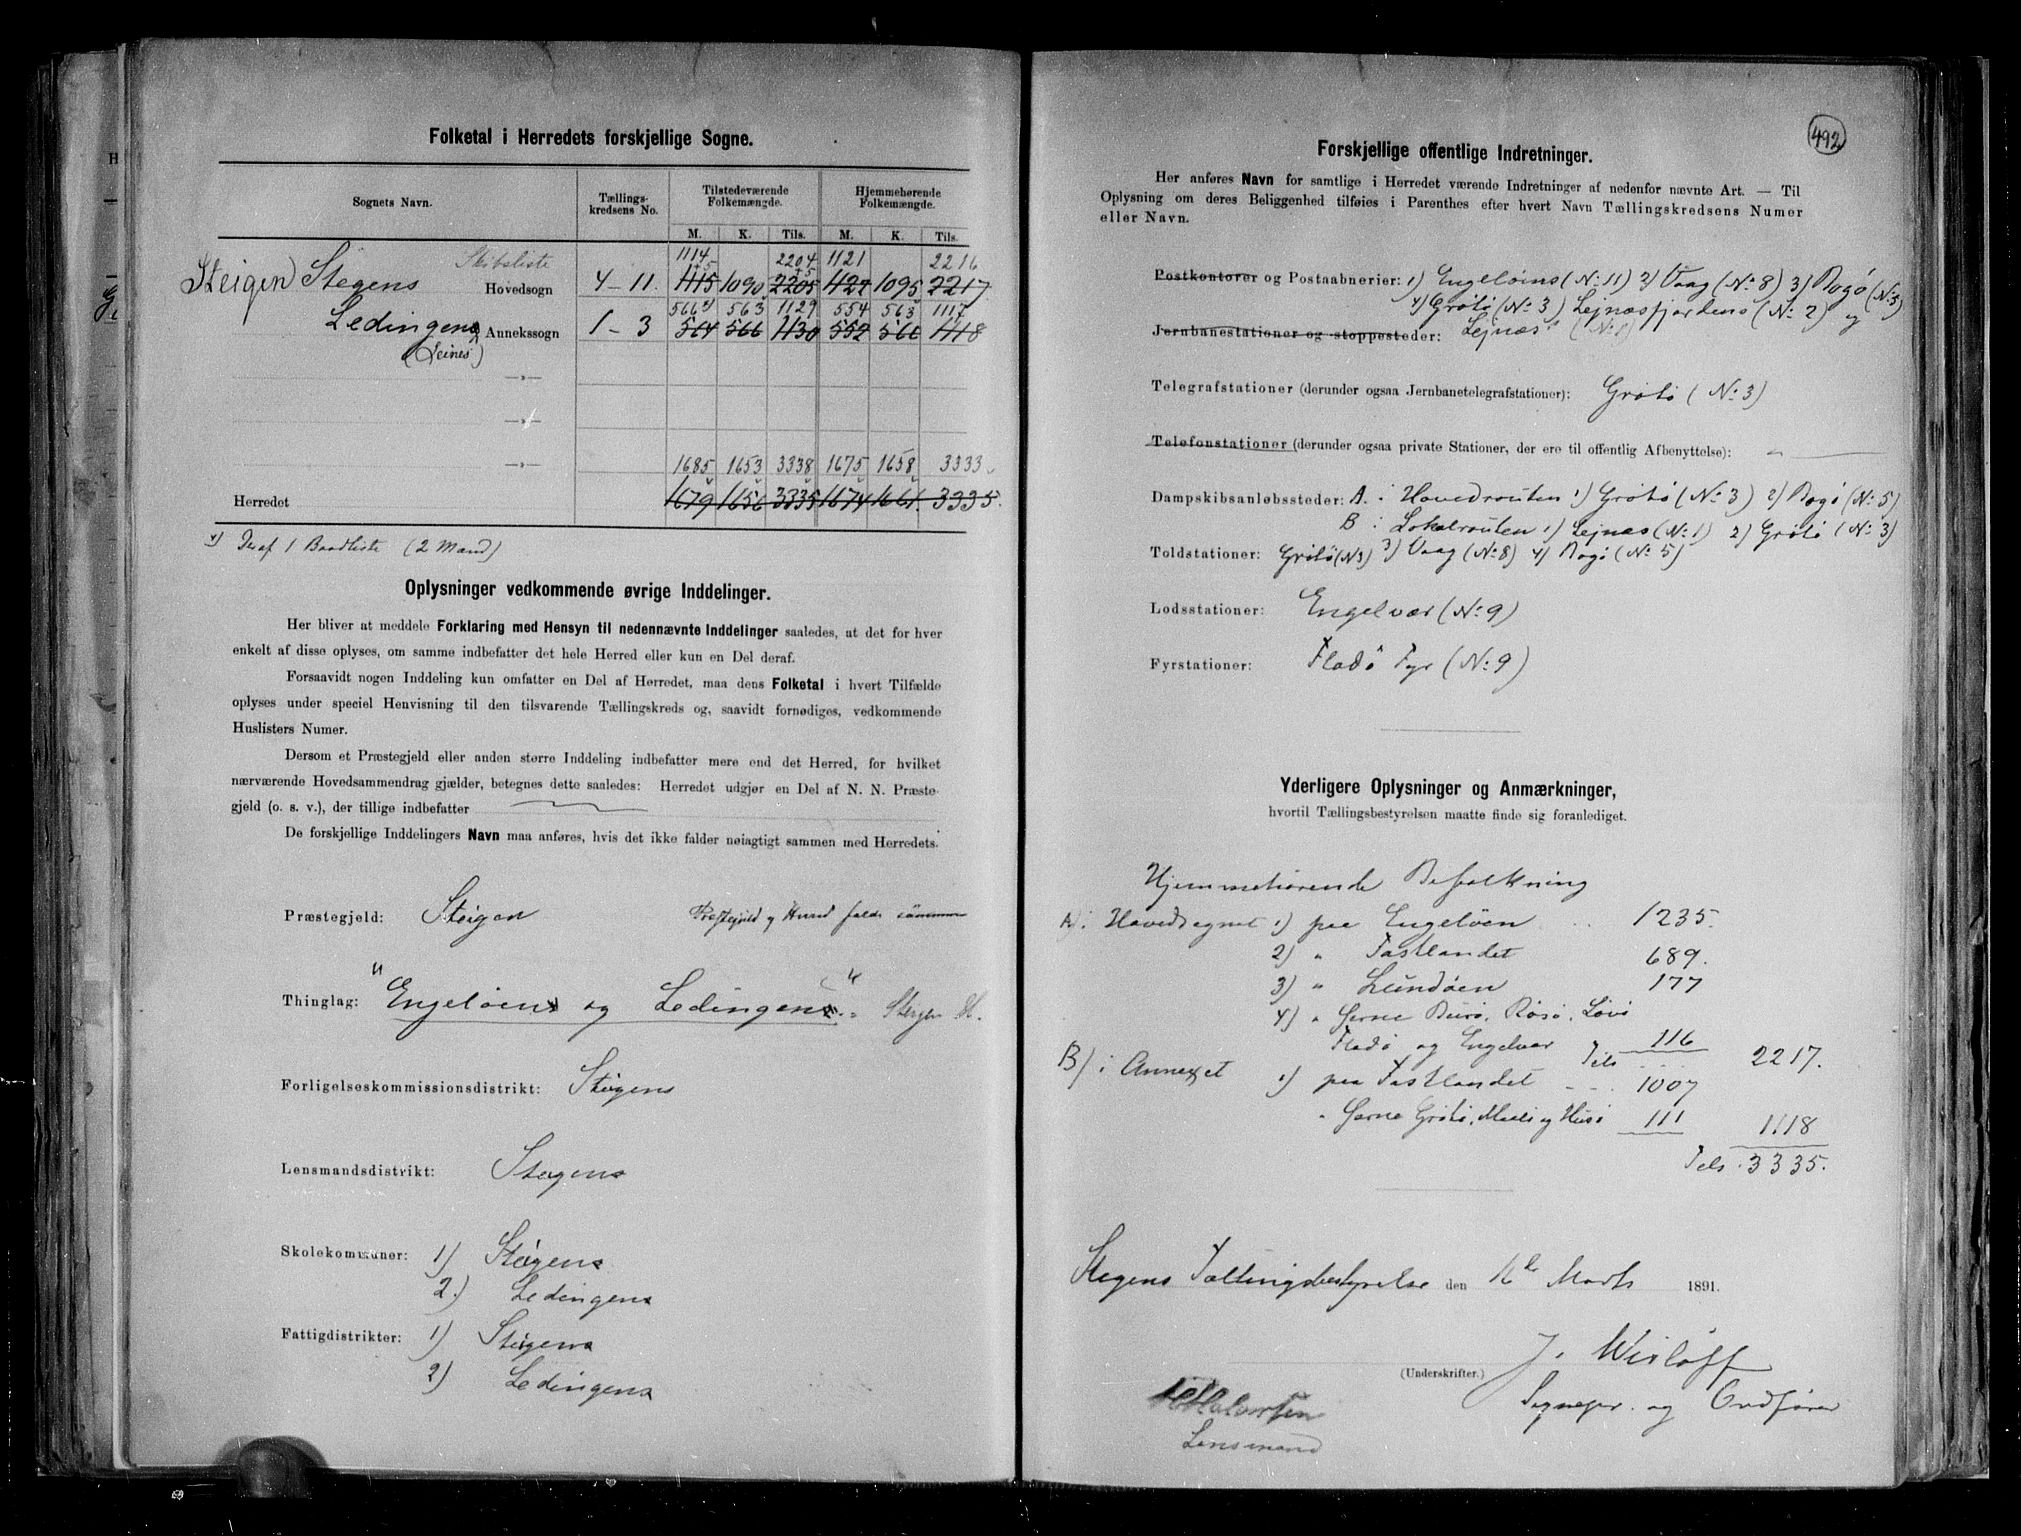 Folketal i Herredets forskjellige Sogne.
Sognets Navn.
Tællings-
kredsens No.
Tilstedeværende
Folkemængde.
Hjemmehørende
Folkemængde.
M. K. Tils. M. K. Tils.
Skibsliste 1114 2204 1121 2216
+5 +5
Steigen Stegens Hovedsogn 4-11 1115 1090 2205 1122 1095 2217
566 4) 563 1129 554 563 1117
Ledingens Annekssogn 1-3 564 566 1130 552 566 1118
(Leines)
—»—
—»—
—»— 1685 1653 3338 1675 1658 3333
Herredet 1679 1656 3335 1674 1661 3335.
4) Deraf 1 Baadliste (2 Mand)
Oplysninger vedkommende øvrige Inddelinger.
Her bliver at meddele Forklaring med Hensyn til nedennævnte Inddelinger saaledes, at det for hver
enkelt af disse oplyses, om samme indbefatter det hele Herred eller kun en Del deraf.
Forsaavidt nogen Inddeling kun omfatter en Del af Herredet, maa dens Folketal i hvert Tilfælde
oplyses under speciel Henvisning til den tilsvarende Tællingskreds og, saavidt fornødiges, vedkommende
Huslisters Numer.
Dersom et Præstegjeld eller anden større Inddeling indbefatter mere end det Herred, for hvilket
nærværende Hovedsammendrag gjælder, betegnes dette saaledes: Herredet udgjør en Del af N. N. Præste-
gjeld (o. s. v.), der tillige indbefatter
De forskjellige Inddelingers Navn maa anføres, hvis det ikke falder nøiagtigt sammen med Herredets.
Præstegjeld: Steigen Præstegjeld og Herred falde sammen
Thinglag: "Engeløens og Ledingens" Steigen
Forligelseskommissionsdistrikt: Stegens
Lensmandsdistrikt: Stegens
Skolekommuner: 1) Stegens
2.) Ledingens
Fattigdistrikter: 1) Stegens
2) Ledingens
492
Forskjellige offentlige Indretninger.
Her anføres Navn for samtlige i Herredet værende Indretninger af nedenfor nævnte Art. — Til
Oplysning om deres Beliggenhed tilføies i Parenthes efter hvert Navn Tællingskredsens Numer
eller Navn.
Postkontorer og Postaabnerier: 1) Engeløens (No 11) 2) Vaag (No 8) 3) Bogø (No 5)
4) Grøtø (No 3) Lejnæsfjordens (No 2) og
Jernbanestationer og stoppesteder: Lejnæs (No 1)
Telegrafstationer (derunder ogsaa Jernbanetelegrafstationer): Grøtø (No 3)
Telefonstationer (derunder ogsaa private Stationer, der ere til offentlig Afbenyttelse):
Dampskibsanløbssteder: A. i Hovedrouten 1) Grøtø (No 3) 2) Bogø (No 5)
B i Lokalrouten 1) Lejnæs (No 1) 2) Grøtø (No 3)
Toldstationer: Grøtø (No 3) 3) Vaag (No 8) 4) Bogø (No 5)
Lodsstationer: Engelvær (No 9)
Fyrstationer: Fladø Fyr (No 9)
Yderligere Oplysninger og Anmærkninger,
hvortil Tællingsbestyrelsen maatte finde sig foranlediget.
Hjemmehørende Befolkning
A) i Hovedsognet 1) paa Engeløen 1235.
2) " Fastlandet 689.
3) " Lundøen 177
4) " Øerne Burø, Røsø, Løvø
Fladø og Engelvær 116 Tils 2217.
B) i Annexet 1) paa Fastlandet 1007
" Øerne Grøtø, Maalø og Husø 111 1118
Tils 3335.
Stegens Tællingsbestyrelse den 16de Marts 1891.
J. Wisløff
(Underskrifter.)
Sogneprest og Ordfører
Lensmand